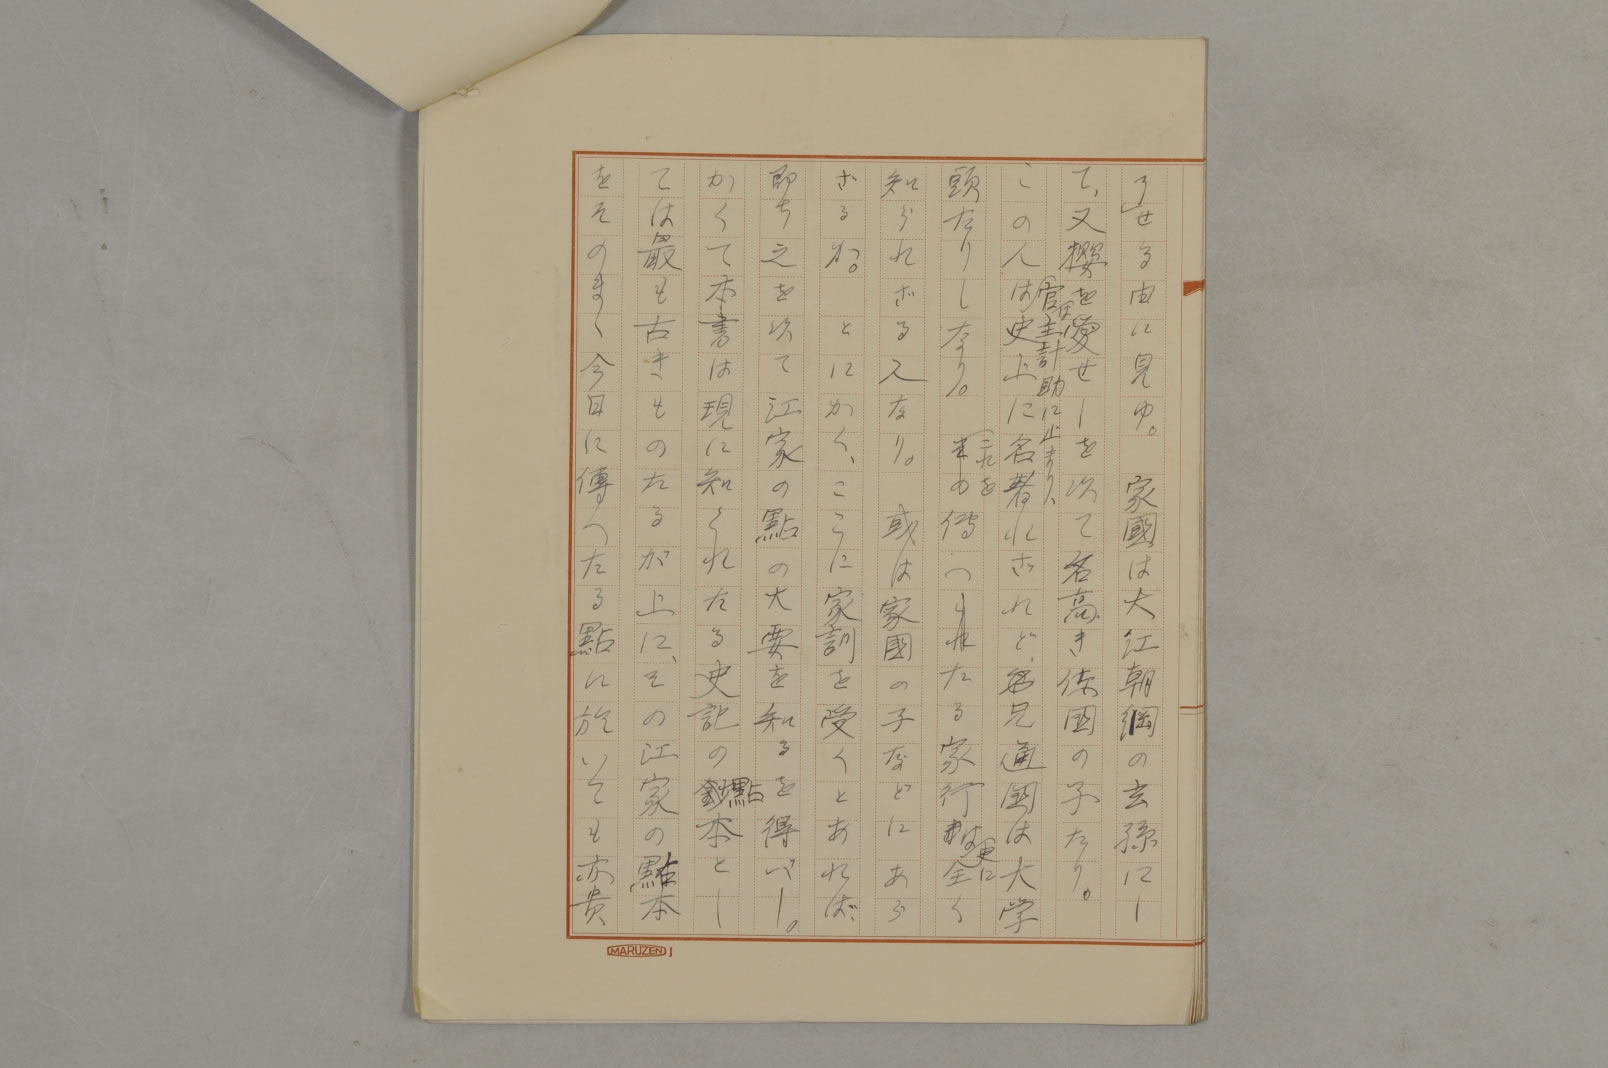 了せる由に見ゆ。 家國は大江朝綱の玄孫にし
て、又櫻を愛せしを以て名高き佐国の子たり。
この人は史上に名著れざれど、兄通国は大学
官は主計助に止まり、
頭たりしなり。 これを傳へたる家行は全く
更に
知られざる人なり。 或は家國の子などにあら
ざるか。 とにかく、ここに家訓を受くとあれば、
即ち之を以て江家の點の大要を知るを得べし。
かくて本書は現に知られたる史記の點本とし
ては最も古きものたるが上に、その江家の點本
をそのまゝ今日に傳へたる點に於いても亦貴
MARUZEN